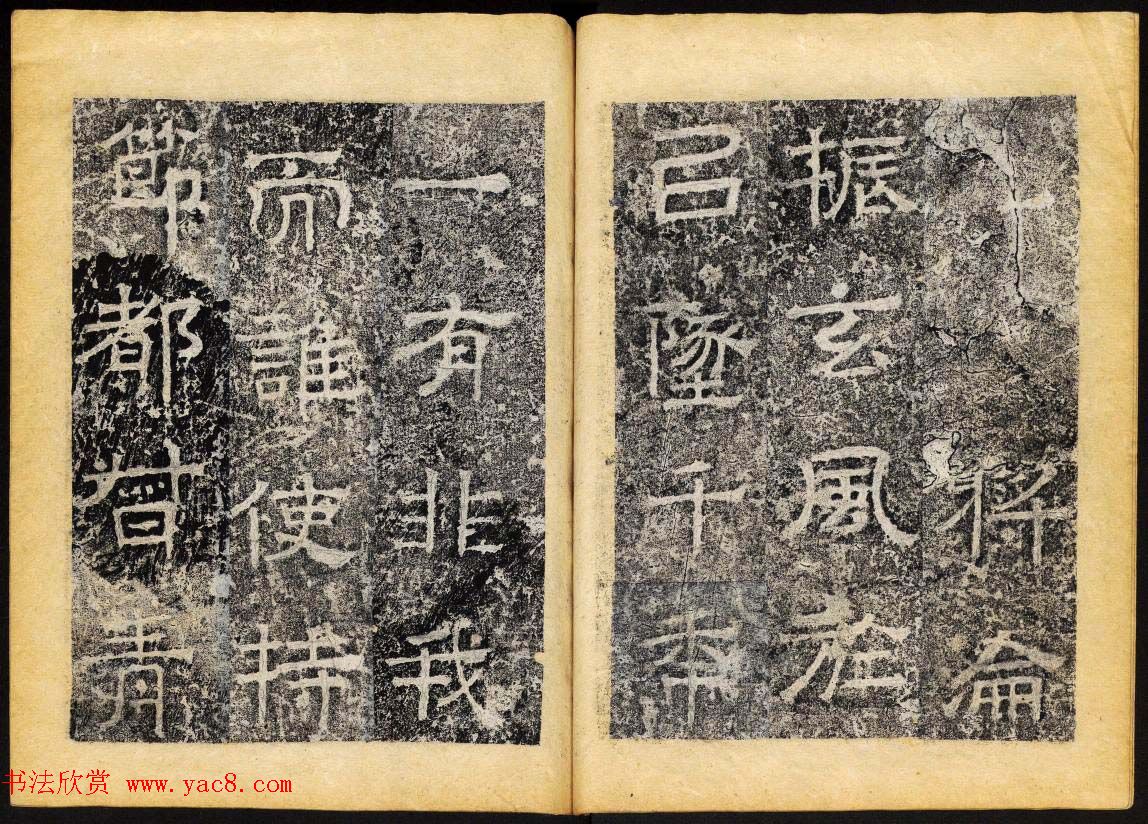 将侖
振玄風於
已墜千年
一有非我
而誰使持
節都督青
书法欣赏 www.yac8.com